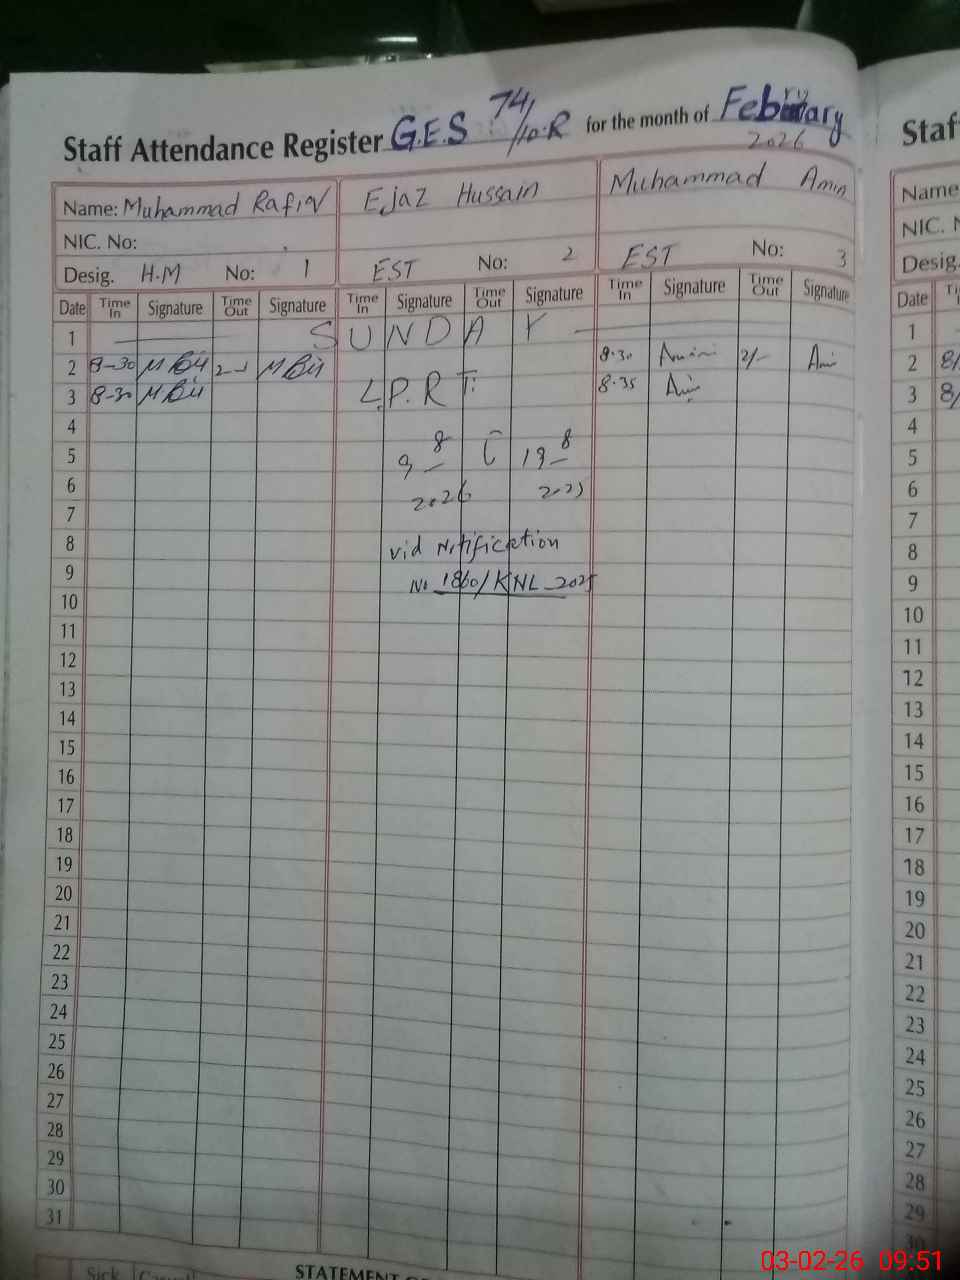 Staff Attendance Register G.E.S 74/10.R for the month of February
2026
Name: Muhammad Rafiq Ejaz Hussain Muhammad Amin
NIC. No:
Desig. H.M No: 1 EST No: 2 EST No: 3
Date Time In Signature Time Out Signature Time In Signature Time Out Signature Time In Signature Time Out Signature
1 SUNDAY
2 8-30 8.30 Amin 2/-
3 8-30 L.P.R 8.35
4
5 9-8 19-8
6 2026 2025
7
8 vid Notification
9 No 1860/KNL-2025
10
11
12
13
14
15
16
17
18
19
20
21
22
23
24
25
26
27
28
29
30
31
Sick
STATEMENT
Staf
Name
NIC. N
Desig.
Date
1
2 8/
3 8/
4
5
6
7
8
9
10
11
12
13
14
15
16
17
18
19
20
21
22
23
24
25
26
27
28
29
30
03-02-26 09:51